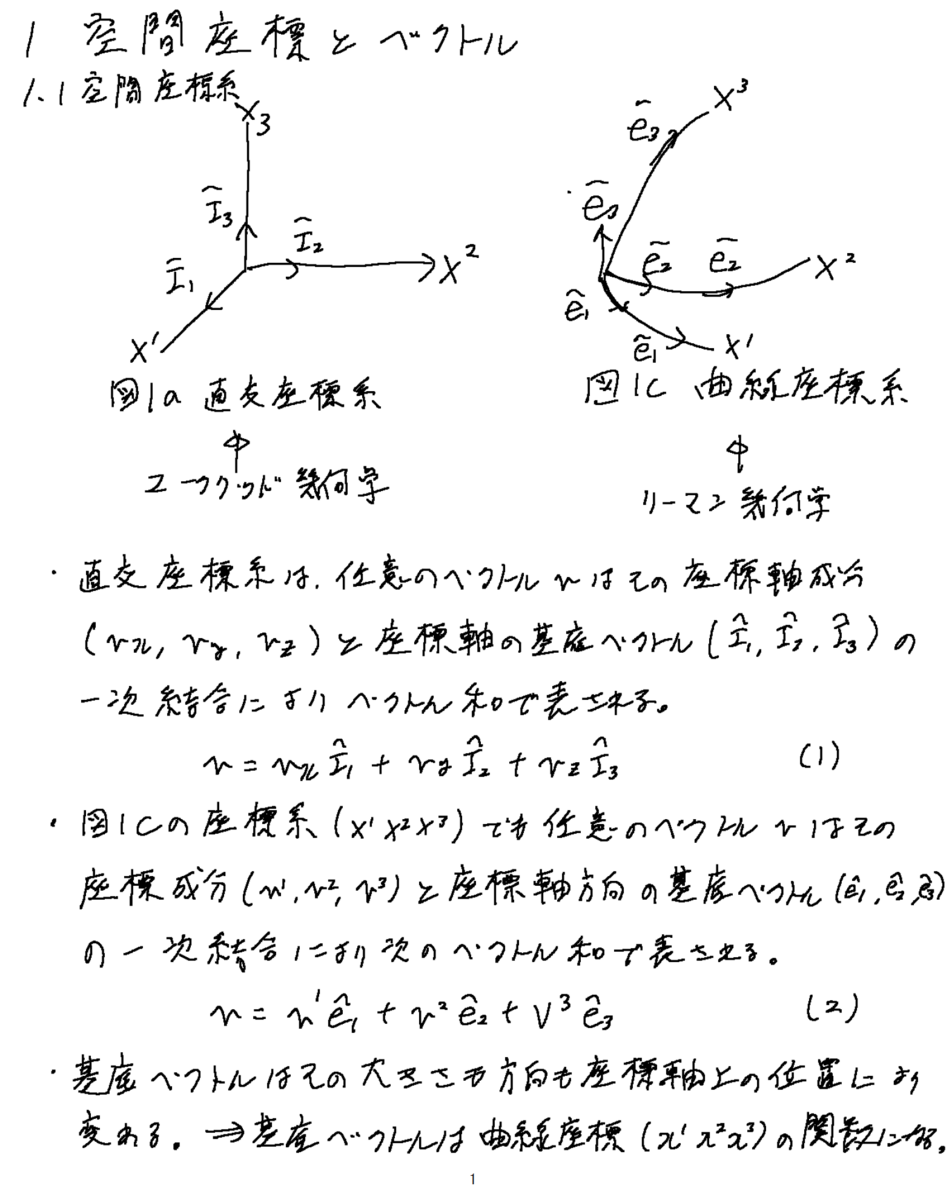 1 空間座標とベクトル
1.1 空間座標系
X3
Î3
Î2
Î1
X²
X¹
図1a 直交座標系
ユークリッド幾何学
X³
ê3
ê3
ê2
ê2
X²
ê1
ê1
X¹
図1C 曲線座標系
リーマン幾何学
・直交座標系は、任意のベクトルvはその座標軸成分
(vx, vy, vz)と座標軸の基底ベクトル(Î1, Î2, Î3)の
一次結合によりベクトル和で表される。
v = vxÎ1 + vyÎ2 + vzÎ3 (1)
・図1Cの座標系(X¹X²X³)でも任意のベクトルvはその
座標成分(v¹, v², v³)と座標軸方向の基底ベクトル(ê1, ê2, ê3)
の一次結合により次のベクトル和で表される。
v = v¹ê1 + v²ê2 + V³ê3 (2)
・基底ベクトルはその大きさも方向も座標軸上の位置により
変わる。⇒基底ベクトルは曲線座標(x¹x²x³)の関数になる。
1